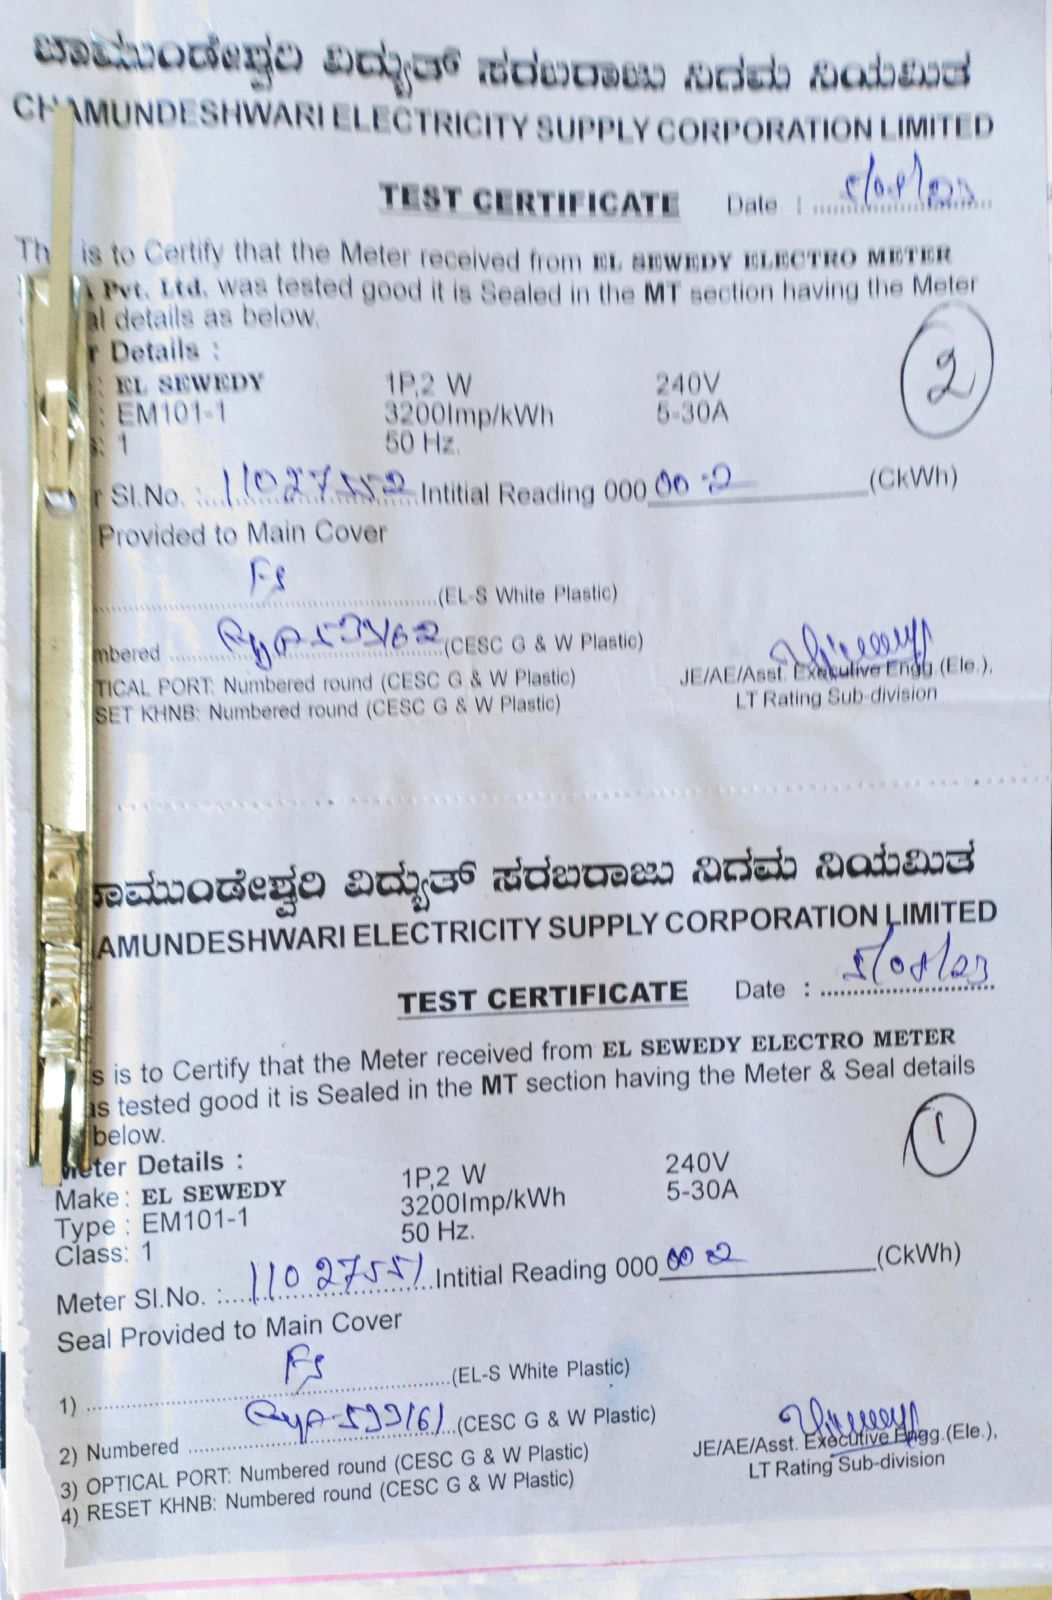 ಚಾಮುಂಡೇಶ್ವರಿ ವಿದ್ಯುತ್ ಸರಬರಾಜು ನಿಗಮ ನಿಯಮಿತ
CHAMUNDESHWARI ELECTRICITY SUPPLY CORPORATION LIMITED
TEST CERTIFICATE Date : 5/08/23
Th is to Certify that the Meter received from EL SEWEDY ELECTRO METER
Pvt. Ltd. was tested good it is Sealed in the MT section having the Meter
al details as below.
r Details :
: EL SEWEDY 1P,2 W 240V
: EM101-1 3200Imp/kWh 5-30A
s: 1 50 Hz.
r Sl.No. : 11027552 Intitial Reading 000 00.2 (CkWh)
Provided to Main Cover
Fs (EL-S White Plastic)
mbered 599162 (CESC G & W Plastic)
TICAL PORT: Numbered round (CESC G & W Plastic)
SET KHNB: Numbered round (CESC G & W Plastic)
JE/AE/Asst. Executive Engg.(Ele.),
LT Rating Sub-division
2
ಾಮುಂಡೇಶ್ವರಿ ವಿದ್ಯುತ್ ಸರಬರಾಜು ನಿಗಮ ನಿಯಮಿತ
AMUNDESHWARI ELECTRICITY SUPPLY CORPORATION LIMITED
TEST CERTIFICATE Date : 5/08/23
s is to Certify that the Meter received from EL SEWEDY ELECTRO METER
as tested good it is Sealed in the MT section having the Meter & Seal details
below.
Meter Details :
Make : EL SEWEDY 1P,2 W 240V
Type : EM101-1 3200Imp/kWh 5-30A
Class: 1 50 Hz.
Meter Sl.No. : 11027551 Intitial Reading 000 00 2 (CkWh)
Seal Provided to Main Cover
1) Fs (EL-S White Plastic)
2) Numbered 599161 (CESC G & W Plastic)
3) OPTICAL PORT: Numbered round (CESC G & W Plastic)
4) RESET KHNB: Numbered round (CESC G & W Plastic)
JE/AE/Asst. Executive Engg.(Ele.),
LT Rating Sub-division
1